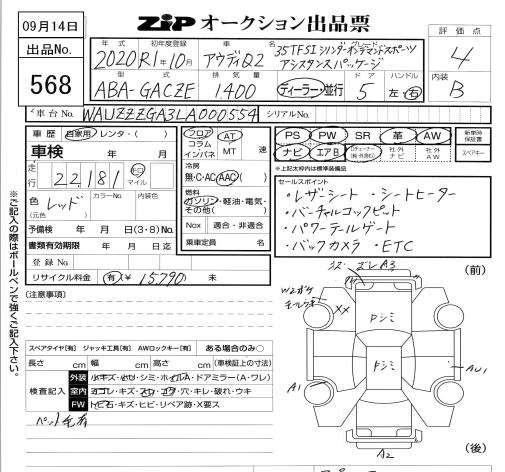 09月14日
ZiP オークション出品票
出品No.
568
年式 初年度登録 車名 グレード
2020 R1年10月 アウディQ2 35TFSI シリンダーオンデマンドスポーツ
アシスタンスパッケージ
型式 排気量 ドア ハンドル
ABA-GACZE 1,400 ディーラー・並行 5 左・右
評価点
4
内装
B
車台No. WAUZZZGA3LA000554 シリアルNo.
車歴 自家用 レンタ・( )
車検 年 月
走行 22,181 km マイル
色 レッド カラーNo. 内装色
(元色)
予備検 年 月 日(3・8)No.
書類有効期限 年 月 日迄
登録No.
リサイクル料金 有 ¥15,790 未
フロア AT
コラム
インパネ MT 速
冷房
無・C・AC・AAC( )
燃料
ガソリン・軽油・電気・
その他( )
Nox 適合・非適合
乗車定員 名
PS PW SR 革 AW 新車時保証書
ナビ エアB 社外ナビ 社外AW スペアキー
※上記太枠内は標準装備品
セールスポイント
・レザーシート ・シートヒーター
・バーチャルコックピット
・パワーテールゲート
・バックカメラ・ETC
※ご記入の際はボールペンで強くご記入下さい。
(注意事項)
スペアタイヤ[有] ジャッキ工具[有] AWロックキー[有] ある場合のみ○
長さ cm 幅 cm 高さ cm (車検証上の寸法)
検査記入
外装 小キズ・小ヘコ・シミ・ホイルA・ドアミラー(A・ワレ)
室内 ヨゴレ・キズ・スレ・コゲ・穴・キレ・破れ・ウキ
FW トビ石・キズ・ヒビ・リペア跡・X要ス
ペット毛有
(前)
ズレA3
W2
XX
Pシミ
Pシミ
A1
AU1
A2
(後)